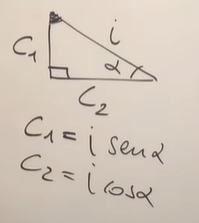 C₁
i
α
C₂
C₁ = i senα
C₂ = i cosα